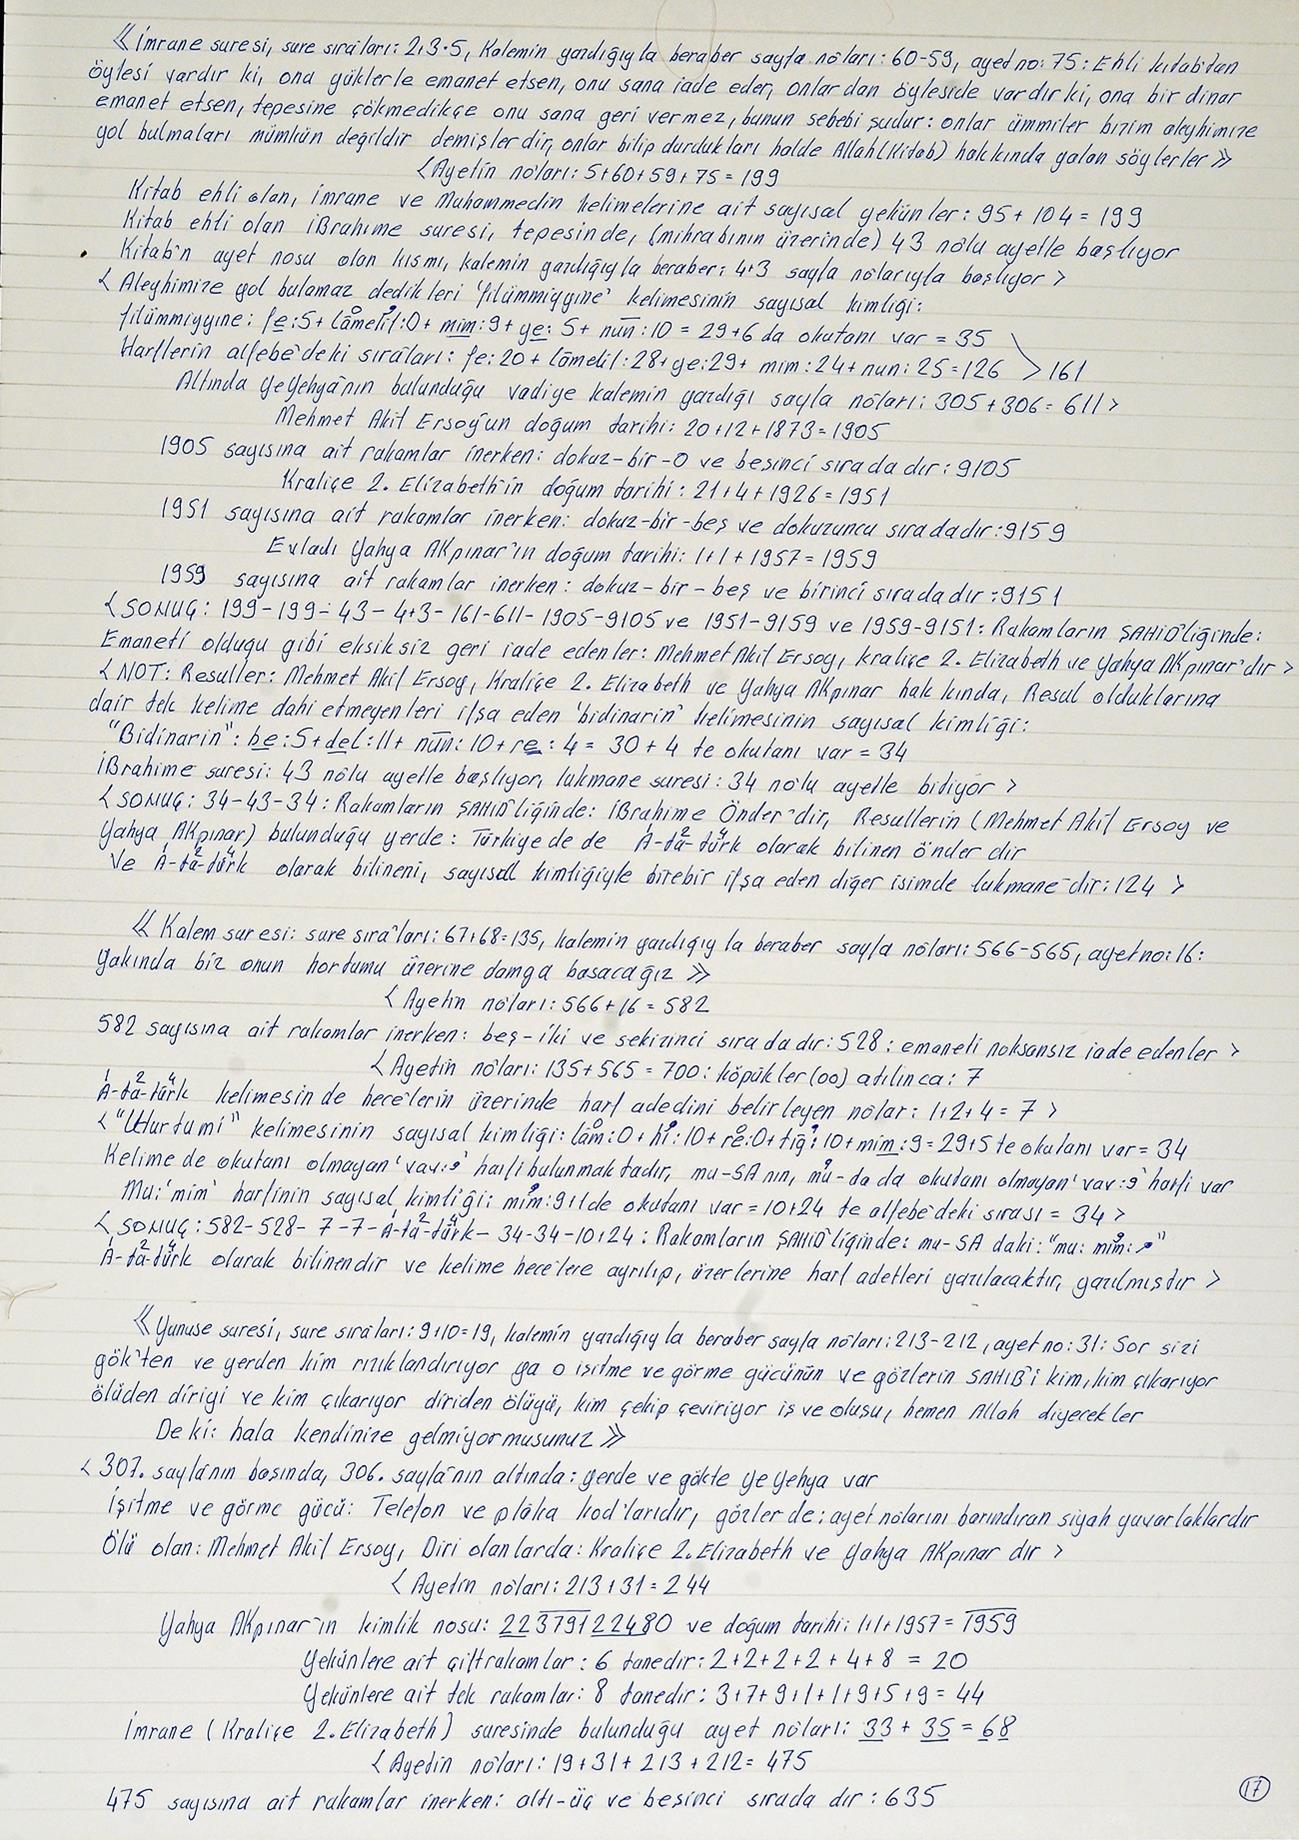 《 İmrane suresi, sure sıra'ları: 2+3=5, Kalemin yazdığıyla beraber sayfa no'ları: 60-59, ayet no: 75: Ehli kitab'tan
öylesi vardır ki, ona yüklerle emanet etsen, onu sana iade eder, onlardan öyleside vardır ki, ona bir dinar
emanet etsen, tepesine çökmedikçe onu sana geri vermez, bunun sebebi şudur: onlar ümmiler bizim aleyhimize
yol bulmaları mümkün değildir demişlerdir, onlar bilip durdukları halde Allah (Kitab) hakkında yalan söylerler 》
< Ayetin no'ları: 5+60+59+75=199
Kitab ehli olan, İmrane ve Muhammedin kelimelerine ait sayısal yekünler: 95+104=199
Kitab ehli olan İBrahime suresi, tepesinde, (mihrabının üzerinde) 43 no'lu ayetle başlıyor
Kitab'n ayet nosu olan kısmı, kalemin yazdığıyla beraber: 4+3 sayfa no'larıyla başlıyor >
< Aleyhimize yol bulamaz dedikleri 'filümmiyyine' kelimesinin sayısal kimliği:
filümmiyyine: fe:5+ lâmelif:0+ mim:9+ ye: 5+ nün:10 = 29+6 da okutanı var = 35
Harflerin alfebe'deki sıra'ları: fe:20+ lâmelif:28+ ye:29+ mim:24+ nun:25=126 > 161
Altında YeYehya'nın bulunduğu vadiye kalemin yazdığı sayfa no'ları: 305+306=611 >
Mehmet Akif Ersoy'un doğum tarihi: 20+12+1873=1905
1905 sayısına ait rakamlar inerken: dokuz-bir-0 ve beşinci sıradadır: 9105
Kraliçe 2. Elizabeth'in doğum tarihi: 21+4+1926=1951
1951 sayısına ait rakamlar inerken: dokuz-bir-beş ve dokuzuncu sıradadır: 9159
Evladı Yahya AKpınar'ın doğum tarihi: 1+1+1957=1959
1959 sayısına ait rakamlar inerken: dokuz-bir-beş ve birinci sıradadır: 9151
< SONUÇ: 199-199-43-4+3-161-611-1905-9105 ve 1951-9159 ve 1959-9151: Rakamların ŞAHİD'liğinde:
Emaneti olduğu gibi eksiksiz geri iade edenler: Mehmet Akif Ersoy, kraliçe 2. Elizabeth ve Yahya AKpınar'dır >
< NOT: Resuller: Mehmet Akif Ersoy, Kraliçe 2. Elizabeth ve Yahya AKpınar hakkında, Resul olduklarına
dair tek kelime dahi etmeyenleri ifşa eden 'bidinarin' kelimesinin sayısal kimliği:
"Bidinarin": be:5+ del:11+ nün:10+ re:4= 30+4 te okutanı var = 34
İBrahime suresi: 43 no'lu ayetle başlıyor, lukmane suresi: 34 no'lu ayetle bitiyor >
< SONUÇ: 34-43-34: Rakamların ŞAHİD'liğinde: İBrahime Önder'dir, Resullerin (Mehmet Akif Ersoy ve
Yahya AKpınar) bulunduğu yerde: Türkiye de de A¹-ta²-türk⁴ olarak bilinen önder dir
Ve A¹-ta²-türk⁴ olarak bilineni, sayısal kimliğiyle birebir ifşa eden diğer isimde lukmane'dir: 124 >
《 Kalem suresi: sure sıra'ları: 67+68=135, kalemin yazdığıyla beraber sayfa no'ları: 566-565, ayet no: 16:
Yakında biz onun hortumu üzerine damga basacağız 》
< Ayetin no'ları: 566+16=582
582 sayısına ait rakamlar inerken: beş-iki ve sekizinci sıradadır: 528: emaneti noksansız iade edenler >
< Ayetin no'ları: 135+565=700: köpükler (00) atılınca: 7
A¹-ta²-türk⁴ kelimesinde hece'lerin üzerinde harf adedini belirleyen no'lar: 1+2+4=7 >
< "Ulhurtumi" kelimesinin sayısal kimliği: lâm:0+ hı:10+ re:0+ tıg:10+ mim:9=29+5 te okutanı var=34
Kelime de okutanı olmayan 'vav:و' harfi bulunmaktadır, mu-SA nın, mu-da da okutanı olmayan 'vav:و' harfi var
Mu: 'mim' harfinin sayısal kimliği: mim:9+1 de okutanı var=10+24 te alfebe'deki sırası=34 >
< SONUÇ: 582-528-7-7-A¹-ta²-türk⁴-34-34-10+24: Rakamların ŞAHİD'liğinde: mu-SA daki: "mu: mim: م"
A¹-ta²-türk⁴ olarak bilinendir ve kelime hece'lere ayrılıp, üzerlerine harf adetleri yazılacaktır, yazılmıştır >
《 Yunuse suresi, sure sıra'ları: 9+10=19, kalemin yazdığıyla beraber sayfa no'ları: 213-212, ayet no: 31: Sor sizi
gök'ten ve yerden kim rızıklandırıyor ya o işitme ve görme gücünün ve gözlerin SAHİB'i kim, kim çıkarıyor
ölüden diriyi ve kim çıkarıyor diriden ölüyü, kim çekip çeviriyor iş ve oluşu, hemen Allah diyecekler
De ki: hala kendinize gelmiyormusunuz 》
< 307. sayfa'nın başında, 306. sayfa'nın altında: yerde ve gökte YeYehya var
İşitme ve görme gücü: Telefon ve plâka kod'larıdır, gözler de: ayet no'larını barındıran siyah yuvarlaklardır
Ölü olan: Mehmet Akif Ersoy, Diri olanlarda: Kraliçe 2. Elizabeth ve Yahya AKpınar dır >
< Ayetin no'ları: 213+31=244
Yahya AKpınar'ın kimlik nosu: 22379122480 ve doğum tarihi: 1+1+1957=1959
Yekünlere ait çift rakamlar: 6 tanedir: 2+2+2+2+4+8 = 20
Yekünlere ait tek rakamlar: 8 tanedir: 3+7+9+1+1+9+5+9=44
İmrane (Kraliçe 2. Elizabeth) suresinde bulunduğu ayet no'ları: 33+35=68
< Ayetin no'ları: 19+31+213+212=475
475 sayısına ait rakamlar inerken: altı-üç ve beşinci sırada dır: 635
17